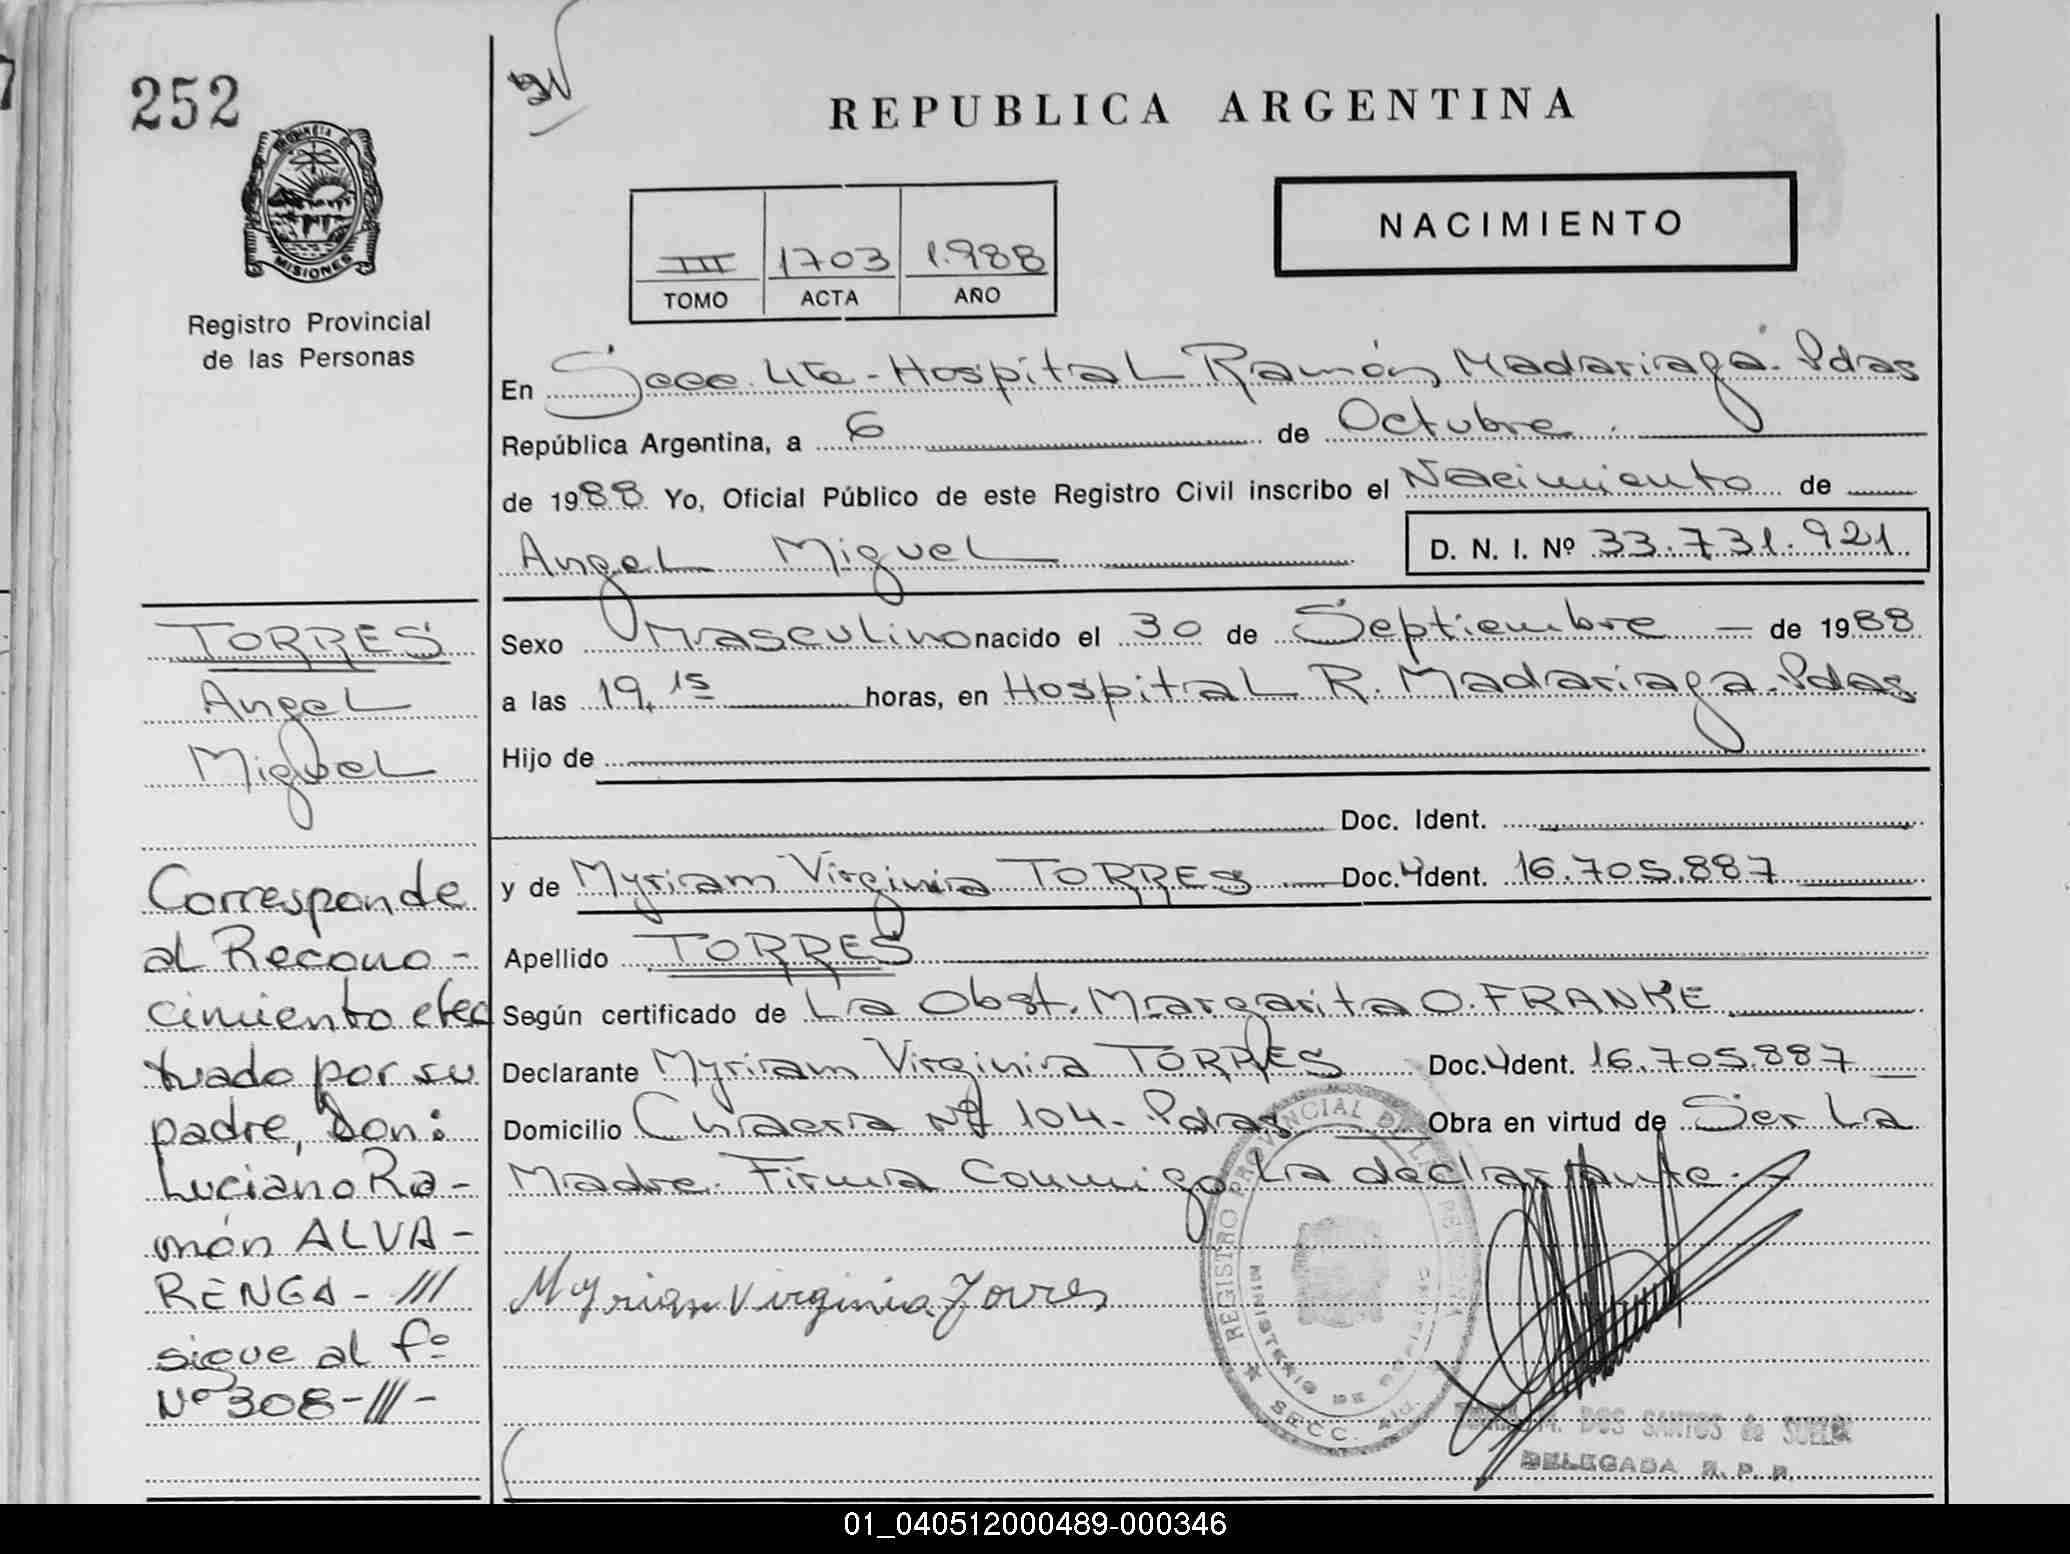 252
PROVINCIA DE
MISIONES
Registro Provincial
de las Personas
REPUBLICA ARGENTINA
NACIMIENTO
III 1703 1.988
TOMO ACTA AÑO
En Secc. 4ta - Hospital Ramón Madariaga. Pdas
República Argentina, a 6 de Octubre
de 1988 Yo, Oficial Público de este Registro Civil inscribo el Nacimiento de
Angel Miguel D. N. I. Nº 33.731.921
Sexo Masculino nacido el 30 de Septiembre de 1988
a las 19,15 horas, en Hospital R. Madariaga. Pdas
Hijo de
Doc. Ident.
y de Myriam Virginia TORRES Doc. Ident. 16.705.887
Apellido TORRES
Según certificado de La Obst. Margarita O. FRANKE
Declarante Myriam Virginia TORRES Doc. Ident. 16.705.887
Domicilio Chacra Nº 104 - Pdas Obra en virtud de Ser La
Madre. Firma Conmigo La declarante.
Myriam Virginia Torres
REGISTRO PROVINCIAL DE LAS PERSONAS
MINISTERIO DE GOBIERNO
SECC. 4ta
M. DOS SANTOS de
DELEGADA R. P. P.
TORRES
Angel
Miguel
Corresponde
al Recono-
cimiento efec
tuado por su
padre, Don:
Luciano Ra-
món ALVA-
RENGA - ///
sigue al fº
Nº 308-///-
01_040512000489-000346